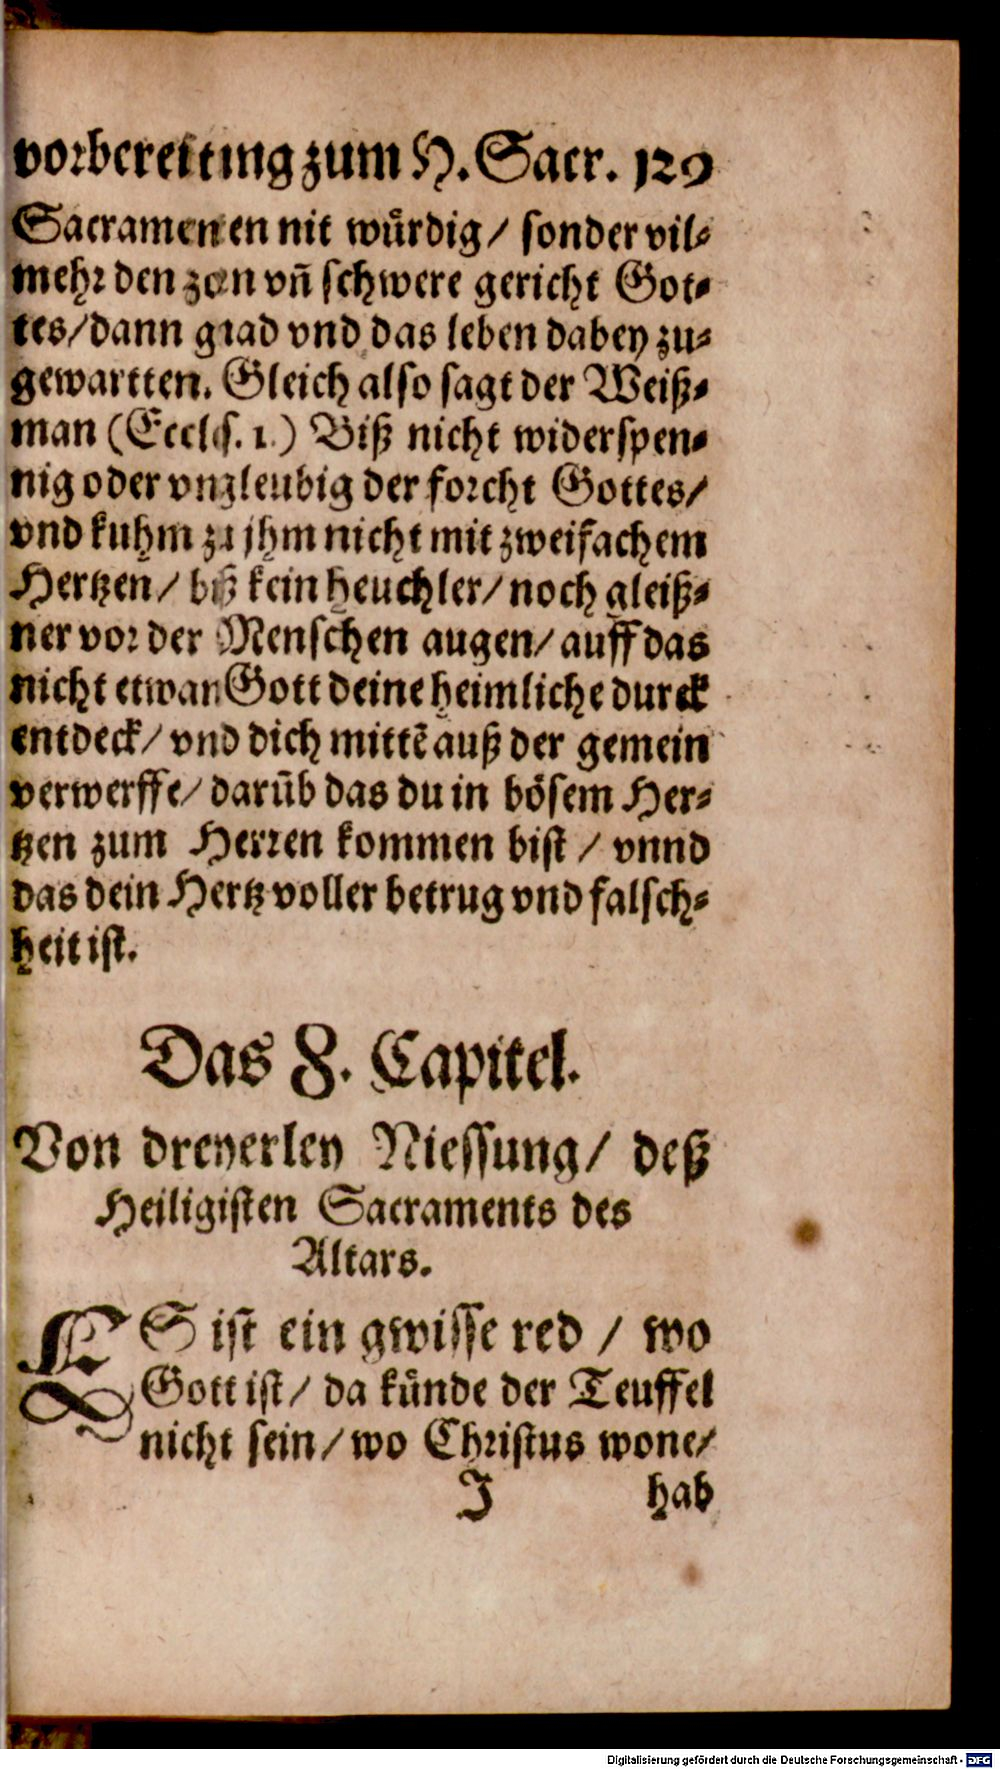 vorbereitung zum H. Sacr. 129
Sacramenten nit würdig / sonder vil-
mehr den zorn vn̄ schwere gericht Got-
tes/dann gnad vnd das leben dabey zu-
gewartten. Gleich also sagt der Weiß-
man (Eccles. 1.) Biß nicht widerspen-
nig oder vngleubig der forcht Gottes/
vnd kuhm zu jhm nicht mit zweifachem
Hertzen / biß kein heuchler/ noch gleiß-
ner vor der Menschen augen/ auff das
nicht etwan Gott deine heimliche durck
entdeck/ vnd dich mittē auß der gemein
verwerffe/ darūb das du in bösem Her-
tzen zum Herren kommen bist / vnnd
das dein Hertz voller betrug vnd falsch-
heit ist.
Das 8. Capitel.
Von dreyerley Niessung/ deß
Heiligisten Sacraments des
Altars.
ES ist ein gwisse red / wo
Gott ist/ da künde der Teuffel
nicht sein/ wo Christus wone/
J hab
Digitalisierung gefördert durch die Deutsche Forschungsgemeinschaft - DFG